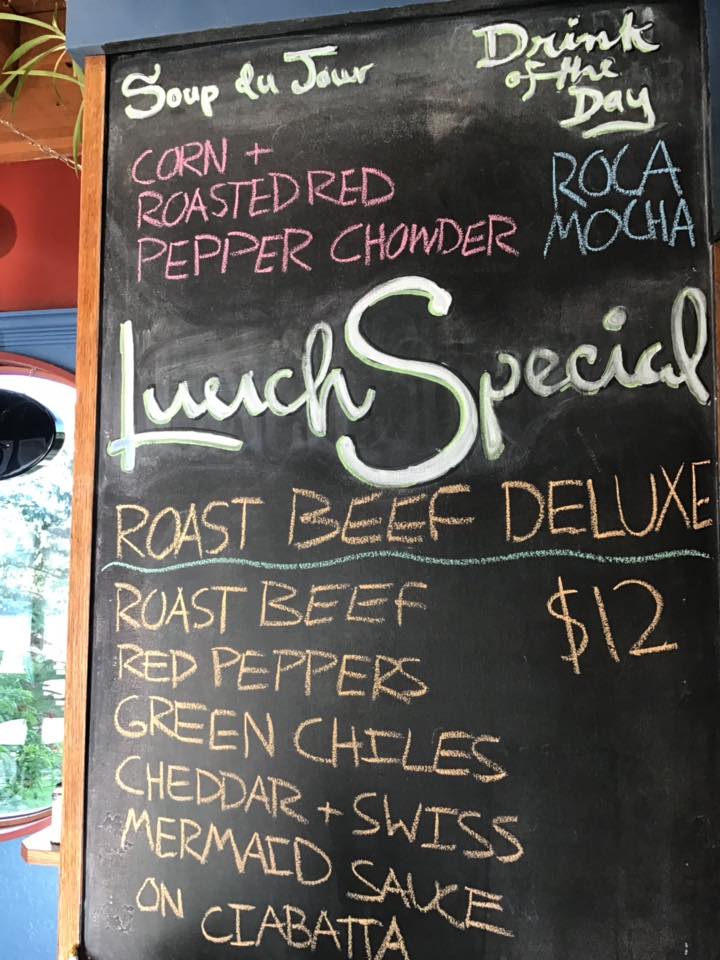 Soup du Jour
CORN +
ROASTED RED
PEPPER CHOWDER
Drink
of the
Day
ROCA
MOCHA
Lunch Special
ROAST BEEF DELUXE
ROAST BEEF $12
RED PEPPERS
GREEN CHILES
CHEDDAR + SWISS
MERMAID SAUCE
ON CIABATTA